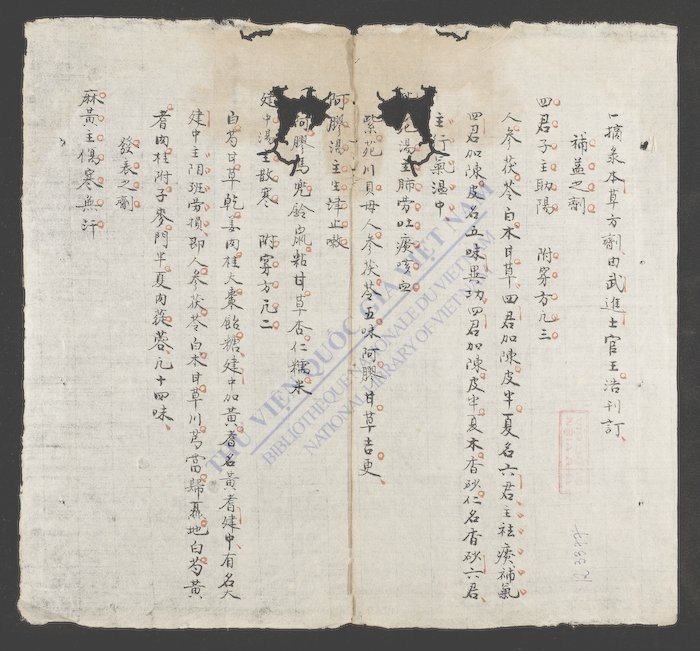 一摘彔本草方劑由武進士官王浩刊訂
補益之劑
四君子主助陽 附穿方凡三
人參茯苓白木甘草四君加陳皮半夏名六君主祛痰補氣
四君加陳皮名五味異功四君加陳皮半夏木香砂仁名香砂六君
主行氣溫中
菀湯主肺勞吐痰咳血
紫菀川貝母人參茯苓五味阿膠甘草吉更
阿膠湯主生津止嗽
阿膠馬兜鈴鼠粘甘草杏仁糯米
建中湯主散寒 附穿方凡二
白芍甘草乾姜肉桂大棗飴糖建中加黃耆名黃耆建中有名大
建中主陽班勞損即人參茯苓白木甘草川芎當歸熟地白芍黃
耆肉桂附子麥門半夏肉蓯蓉凡十四味
發表之劑
麻黃主傷寒無汗
R.3877
THƯ VIỆN QUỐC GIA VIỆT NAM
BIBLIOTHEQUE NATIONALE DU VIETNAM
NATIONAL LIBRARY OF VIETNAM